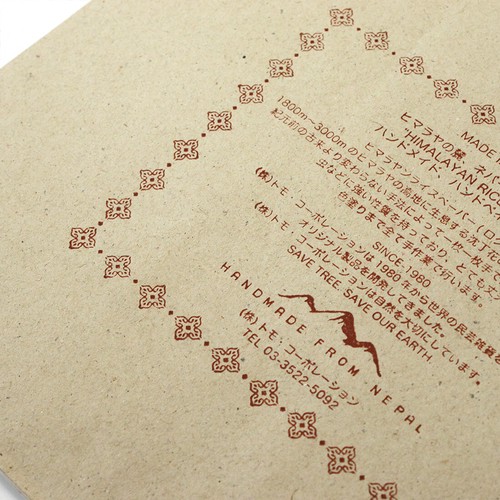 MADE
ヒマラヤの麓、ネパ
"HIMALAYAN RICE
ハンドメイド・ハンドペ
ヒマラヤンライスペーパー(ロ
1800m~3000mのヒマラヤの高地に生息する沈丁花
紀元前の古来より変わらない手法によって、一枚一枚手
虫などに強い性質を持っており、とても丈
色塗りまで全て手作業で行います。
SINCE 1980
(株)トモ・コーポレーションは1980年から世界の民芸雑貨を
オリジナル製品を開発してきました。
(株)トモ・コーポレーションは自然を大切にしています。
SAVE TREE SAVE OUR EARTH.
HANDMADE FROM NEPAL
(株)トモ・コーポレーション
TEL 03-3522-5092